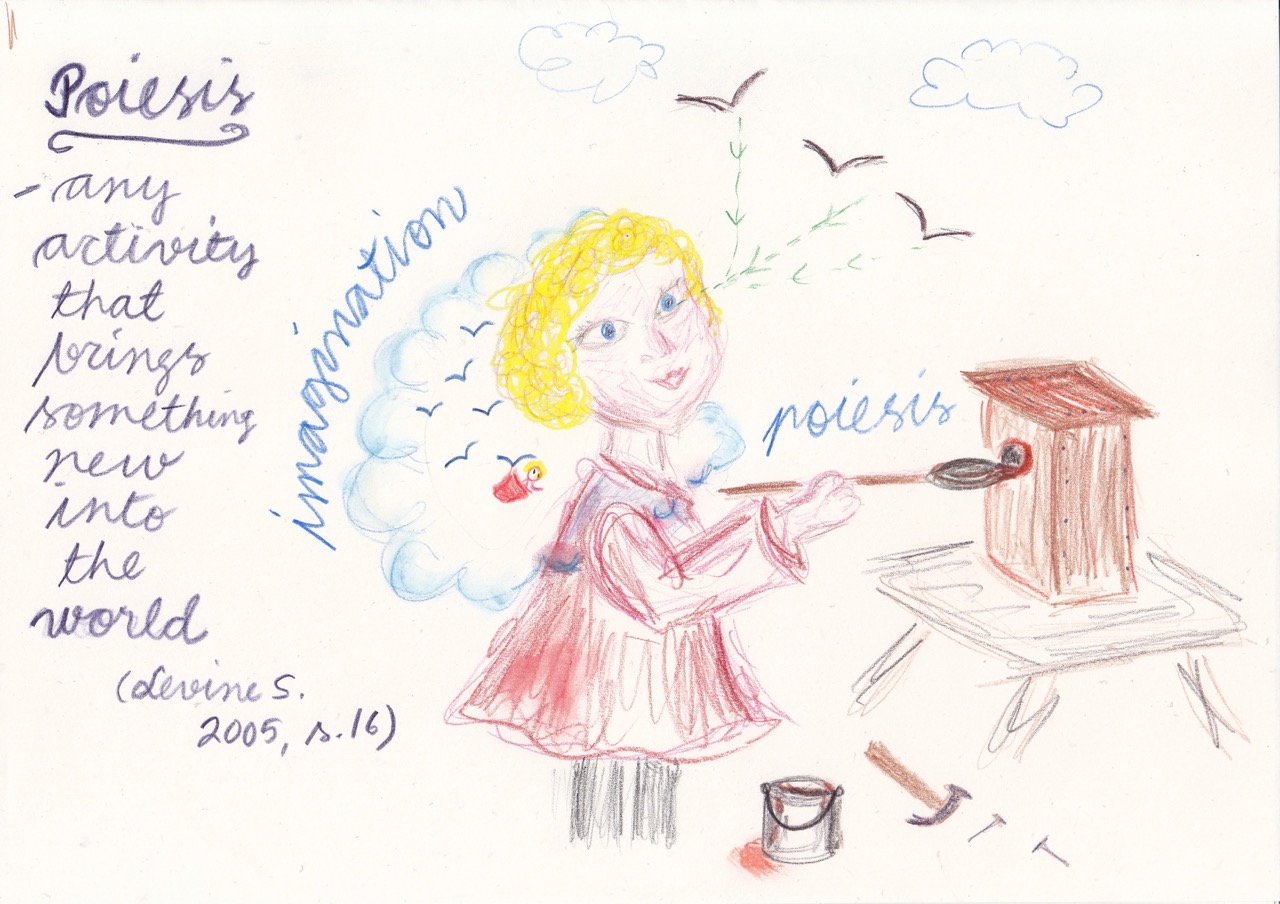 Poiesis
- any
activity
that
brings
something
new
into
the
world
(Levine S.
2005, s.16)
imagination
poiesis